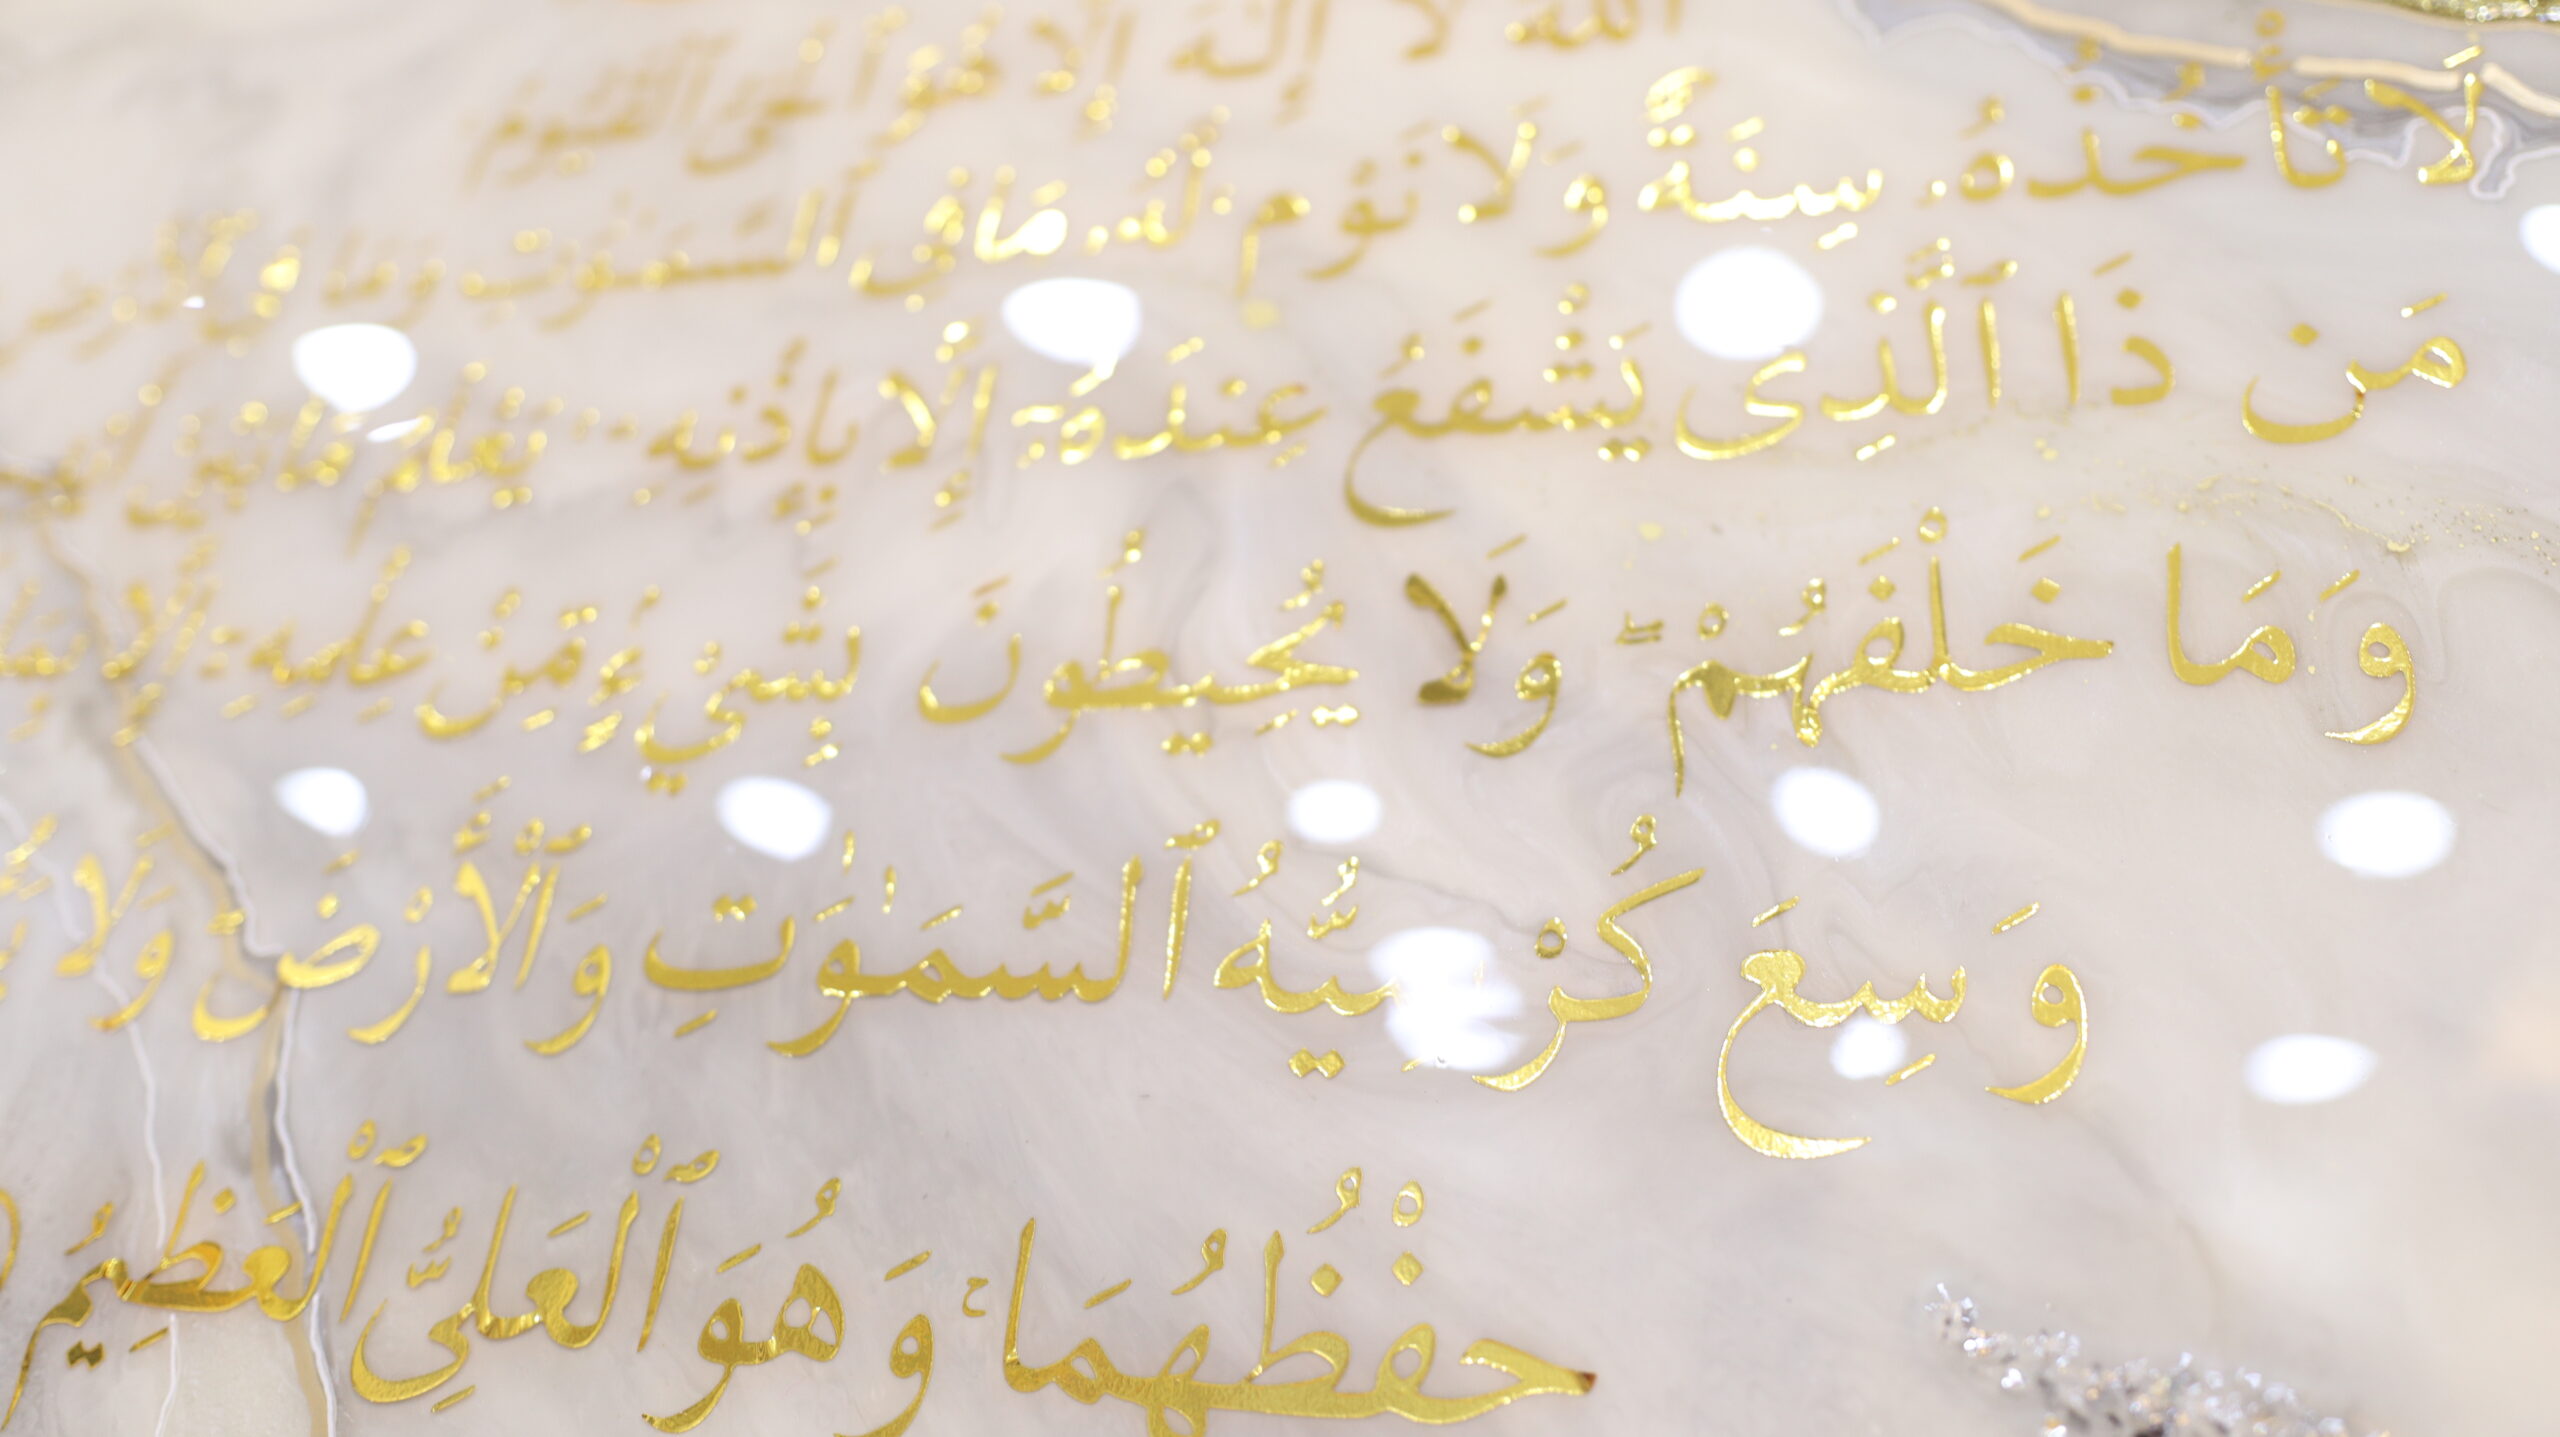 ٱللَّهُ لَآ إِلَٰهَ إِلَّا هُوَ ٱلْحَىُّ ٱلْقَيُّومُ
لَا تَأْخُذُهُۥ سِنَةٌ وَلَا نَوْمٌ لَّهُۥ مَا فِى ٱلسَّمَٰوَٰتِ وَمَا فِى ٱلْأَرْضِ
مَن ذَا ٱلَّذِى يَشْفَعُ عِندَهُۥٓ إِلَّا بِإِذْنِهِۦ يَعْلَمُ مَا بَيْنَ
وَمَا خَلْفَهُمْ ۖ وَلَا يُحِيطُونَ بِشَىْءٍ مِّنْ عِلْمِهِۦٓ إِلَّا
وَسِعَ كُرْسِيُّهُ ٱلسَّمَٰوَٰتِ وَٱلْأَرْضَ ۖ وَلَا
حِفْظُهُمَا ۚ وَهُوَ ٱلْعَلِىُّ ٱلْعَظِيمُ